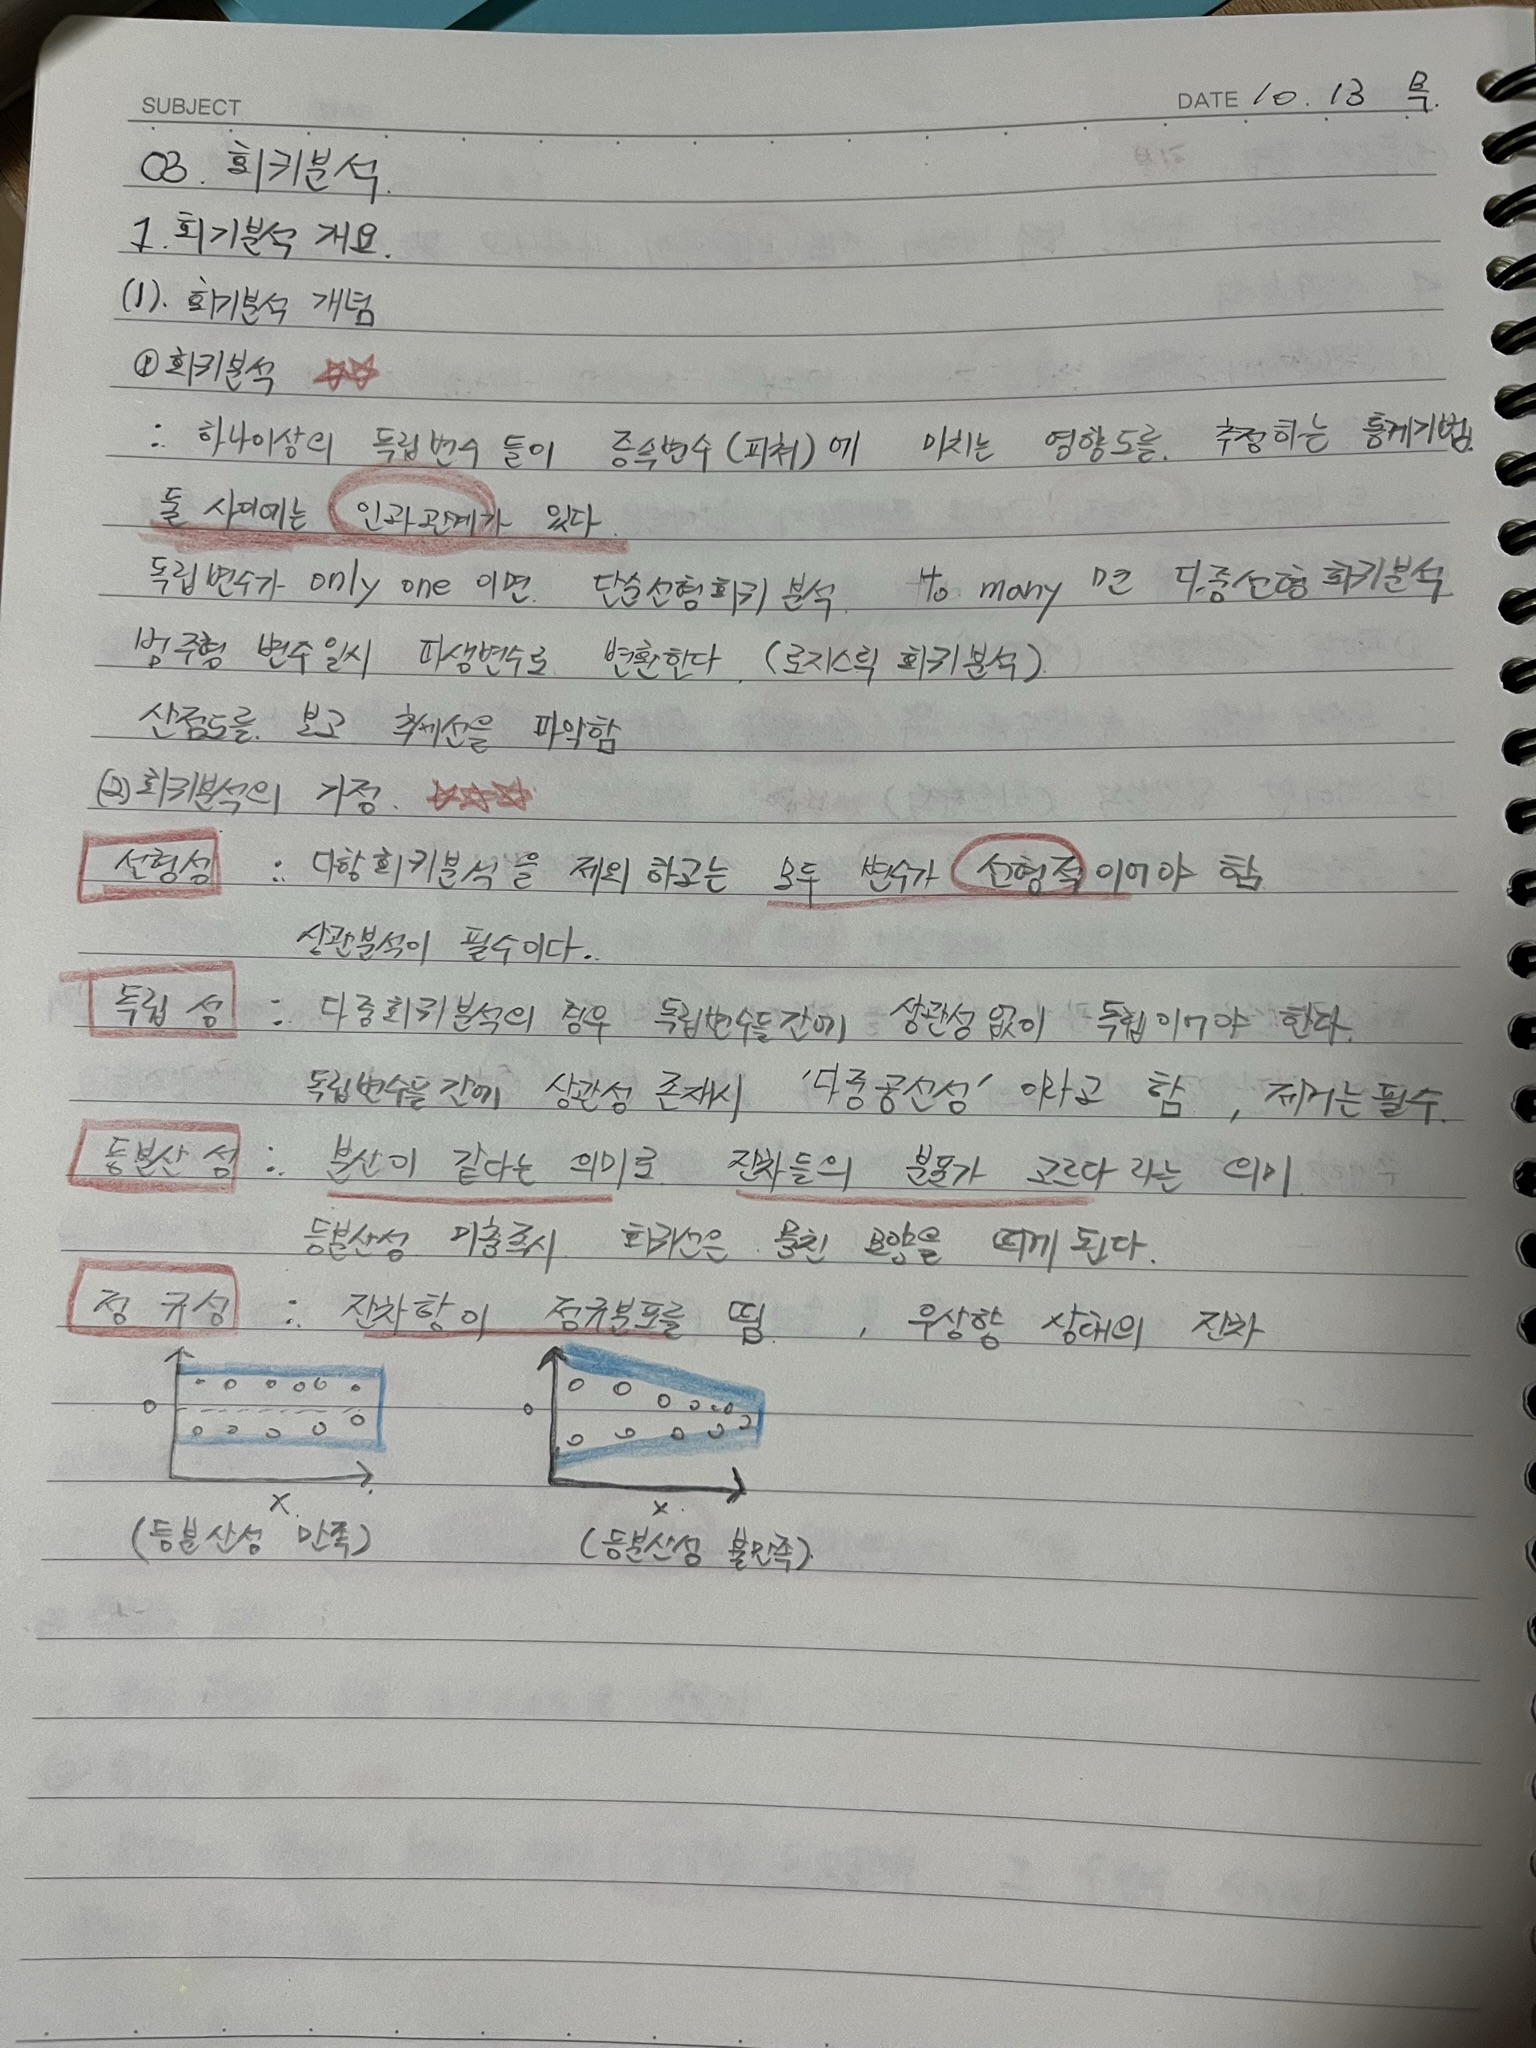 SUBJECT
DATE 10. 13 목.
03. 회키분석.
1. 회기분석 개요.
(1). 회기분석 개념
① 회키분석
: 하나이상의 독립변수 들이 종속변수(피처)에 미치는 영향도를 추정하는 통계기법.
둘 사이에는 인과관계가 있다.
독립변수가 only one 이면 단순선형회키 분석. to many 면 다중선형회키분석
범주형 변수일시 파생변수로 변환한다. (로지스틱 회키분석)
산점도를 보고 추세선을 파악함
(2) 회키분석의 가정.
선형성 : 다항회키분석을 제외 하고는 모두 변수가 선형적이어야 함
상관분석이 필수이다.
독립성 : 다중회키분석의 경우 독립변수들간에 상관성없이 독립이어야 한다.
독립변수들간에 상관성 존재시 '다중공선성' 이라고 함, 제거는필수.
등분산성 : 분산이 같다는 의미로 잔차들의 분포가 고르다라는 의미
등분산성 미충족시 회귀선은 모양을 띄게 된다.
정규성 : 잔차항이 정규분포를 띰, 우상향 상태의 잔차
0
0
x
x.
(등분산성 만족)
(등분산성 불만족).